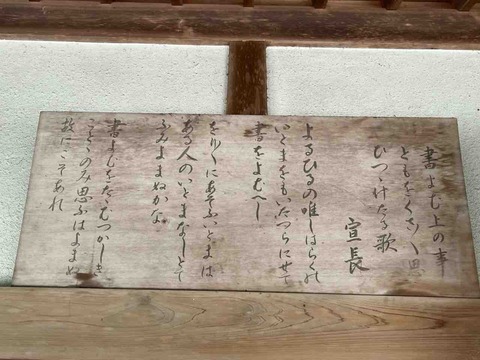 書よむ上の事
ともをくさ〲思
ひつゝけたる歌
宣長
よるひるの唯しはらくの
いとまをもいたつらにせて
書をよむへし
をり〱にあそふいとまは
ある人のいとまなしとて
ふみよまぬかな
書よむをたゝむつかしき
ことゝのみ思ふはよまぬ
故にこそあれ